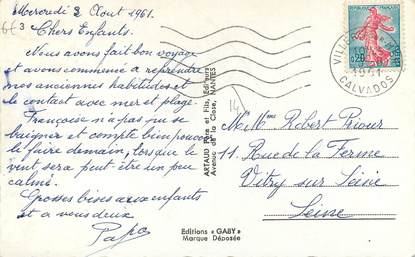 Mercredi 2 Aout 1961.
Chers Enfants.
Nous avons fait bon voyage
et avons commencé a reprendre
mes anciennes habitudes et
le contact avec mer et plage.
Françoise n'a pas pu se
baigner et compte bien pouvoir
le faire demain, lorsque le
vent sera peut être un peu
calmé.
Grosses bises aux enfants
et a vous deux
Papo
6F 3
ARTAUD Père et Fils, Editeurs
Avenue de la Close, NANTES
Editions « GABY »
Marque Déposée
14
0,20
VILLE
CALVADOS
Mr Mme Robert Priour
11 Rue de la Ferme
Vitry sur Seine
Seine